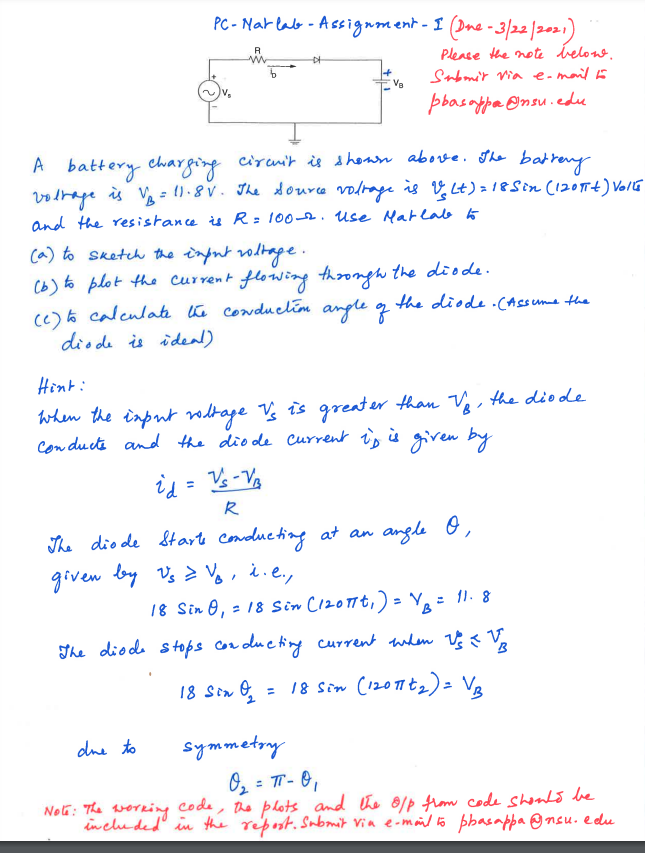 PC-Matlab-Assignment-I (Due-3/22/2021)
Please the note below.
Submit via e-mail to
pbasappa@nsu.edu
R
iD
+
Vs
-
+
VB
-
A battery charging circuit is shown above. The battery
voltage is VB = 11.8V. The source voltage is vs(t) = 18 Sin (120πt) Volts
and the resistance is R = 100-Ω. Use Matlab to
(a) to sketch the input voltage.
(b) to plot the current flowing through the diode.
(c) to calculate the conduction angle of the diode. (Assume the
diode is ideal)
Hint:
When the input voltage Vs is greater than VB, the diode
conducts and the diode current iD is given by
id = Vs-VB
R
The diode starts conducting at an angle θ,
given by vs ≥ VB, i.e.,
18 Sin θ1 = 18 Sin (120πt1) = VB = 11.8
The diode stops conducting current when vs ≤ VB
18 Sin θ2 = 18 Sin (120πt2) = VB
due to symmetry
θ2 = π-θ1
Note: The working code, the plots and the o/p from code should be
included in the report. Submit via e-mail to pbasappa@nsu.edu